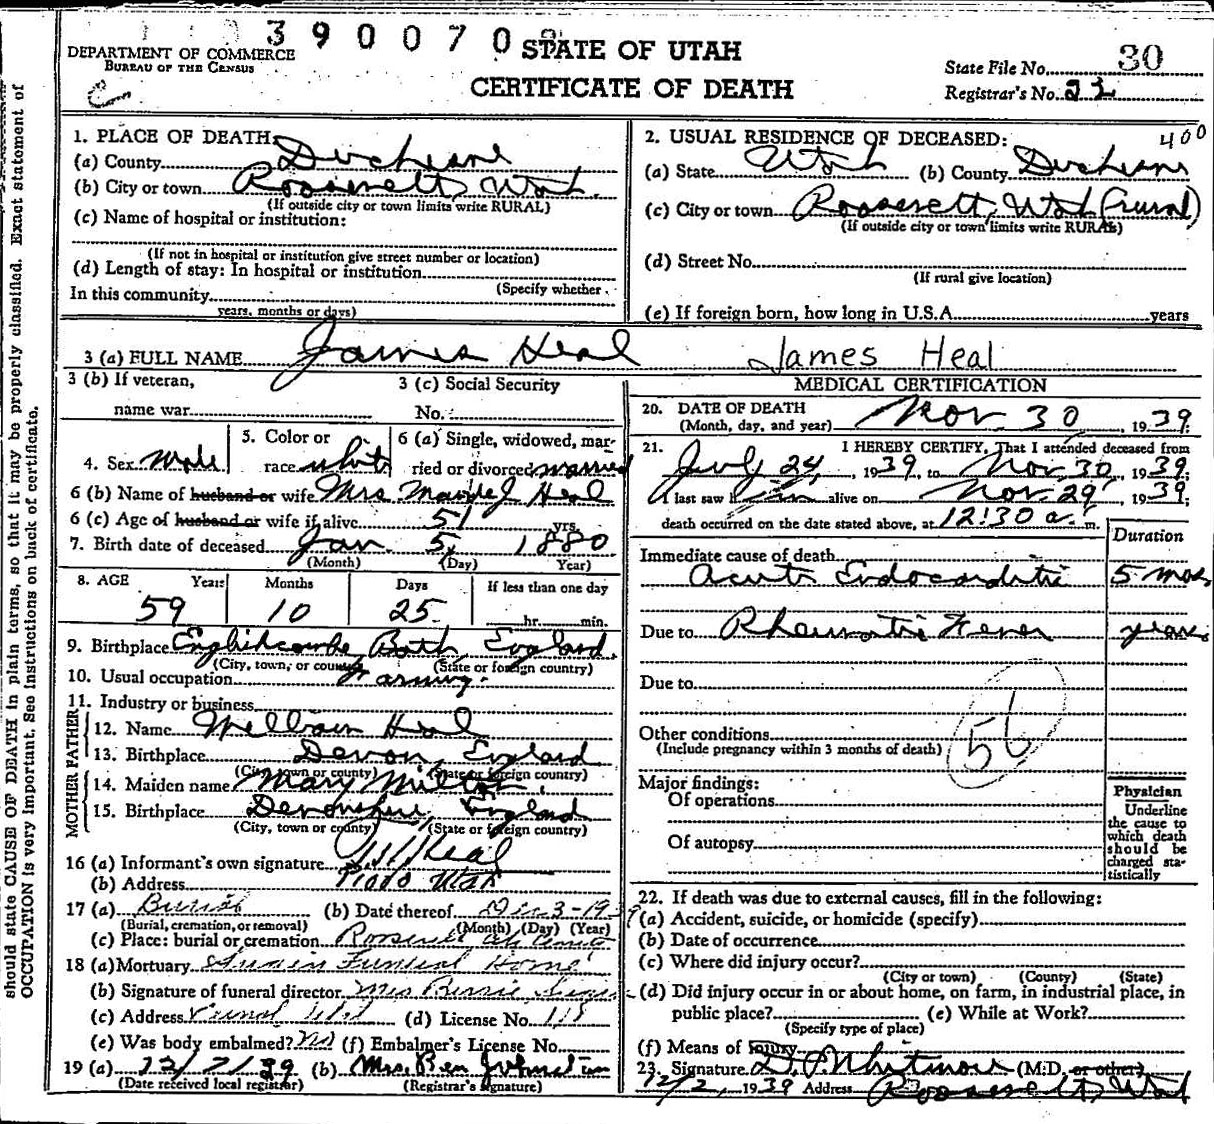 390070
DEPARTMENT OF COMMERCE
BUREAU OF THE CENSUS
STATE OF UTAH
CERTIFICATE OF DEATH
State File No. 30
Registrar's No. 22
should state CAUSE OF DEATH in plain terms, so that it may be properly classified. Exact statement of
OCCUPATION is very important. See instructions on back of certificate.
1. PLACE OF DEATH
(a) County Duchesne
(b) City or town Roosevelt, Utah.
(If outside city or town limits write RURAL)
(c) Name of hospital or institution:
(If not in hospital or institution give street number or location)
(d) Length of stay: In hospital or institution
(Specify whether
In this community
years, months or days)
2. USUAL RESIDENCE OF DECEASED: 400
(a) State Utah (b) County Duchesne
(c) City or town Roosevelt, Utah (rural)
(If outside city or town limits write RURAL)
(d) Street No.
(If rural give location)
(e) If foreign born, how long in U.S.A. years
3 (a) FULL NAME James Heal James Heal
3 (b) If veteran,
name war
3 (c) Social Security
No.
4. Sex Male
5. Color or
race white
6 (a) Single, widowed, mar-
ried or divorced married
6 (b) Name of husband or wife Mrs. Maude J Heal
6 (c) Age of husband or wife if alive 51 yrs.
7. Birth date of deceased Jan. 5, 1880
(Month) (Day) Year)
8. AGE Years Months Days If less than one day
59 10 25 hr. min.
9. Birthplace Englishcombe Bath England.
(City, town, or county) (State or foreign country)
10. Usual occupation Farming.
11. Industry or business
FATHER
12. Name William Heal
13. Birthplace Devon, England
(City, town or county) (State or foreign country)
MOTHER
14. Maiden name Mary Milton
15. Birthplace Devonshire, England
(City, town or county) (State or foreign country)
16 (a) Informant's own signature Heal
(b) Address Provo Utah
17 (a) Burial (b) Date thereof Dec 3-19
(Burial, cremation, or removal) (Month) (Day) (Year)
(c) Place: burial or cremation Roosevelt
18 (a) Mortuary Funeral Home
(b) Signature of funeral director Mrs Bessie
(c) Address Vernal Utah (d) License No. 118
(e) Was body embalmed? No (f) Embalmer's License No.
19 (a) 12/2/39 (b) Mrs. Ben Johnston
(Date received local registrar) (Registrar's signature)
MEDICAL CERTIFICATION
20. DATE OF DEATH
(Month, day, and year) Nov. 30, 1939.
21. I HEREBY CERTIFY, That I attended deceased from
July 24, 1939, to Nov 30, 1939.
I last saw him alive on Nov. 29, 1939,
death occurred on the date stated above, at 12:30 a.m.
Duration
Immediate cause of death
Acute Endocarditis 5 mos.
Due to Rheumatic Fever years
Due to
Other conditions
(Include pregnancy within 3 months of death)
56
Major findings:
Of operations
Of autopsy
Physician
Underline
the cause to
which death
should be
charged sta-
tistically
22. If death was due to external causes, fill in the following:
(a) Accident, suicide, or homicide (specify)
(b) Date of occurrence
(c) Where did injury occur?
(City or town) (County) (State)
(d) Did injury occur in or about home, on farm, in industrial place, in
public place? (e) While at Work?
(Specify type of place)
(f) Means of Injury
23. Signature Whitmore (M.D. or other)
12/2, 1939 Address Roosevelt, Utah